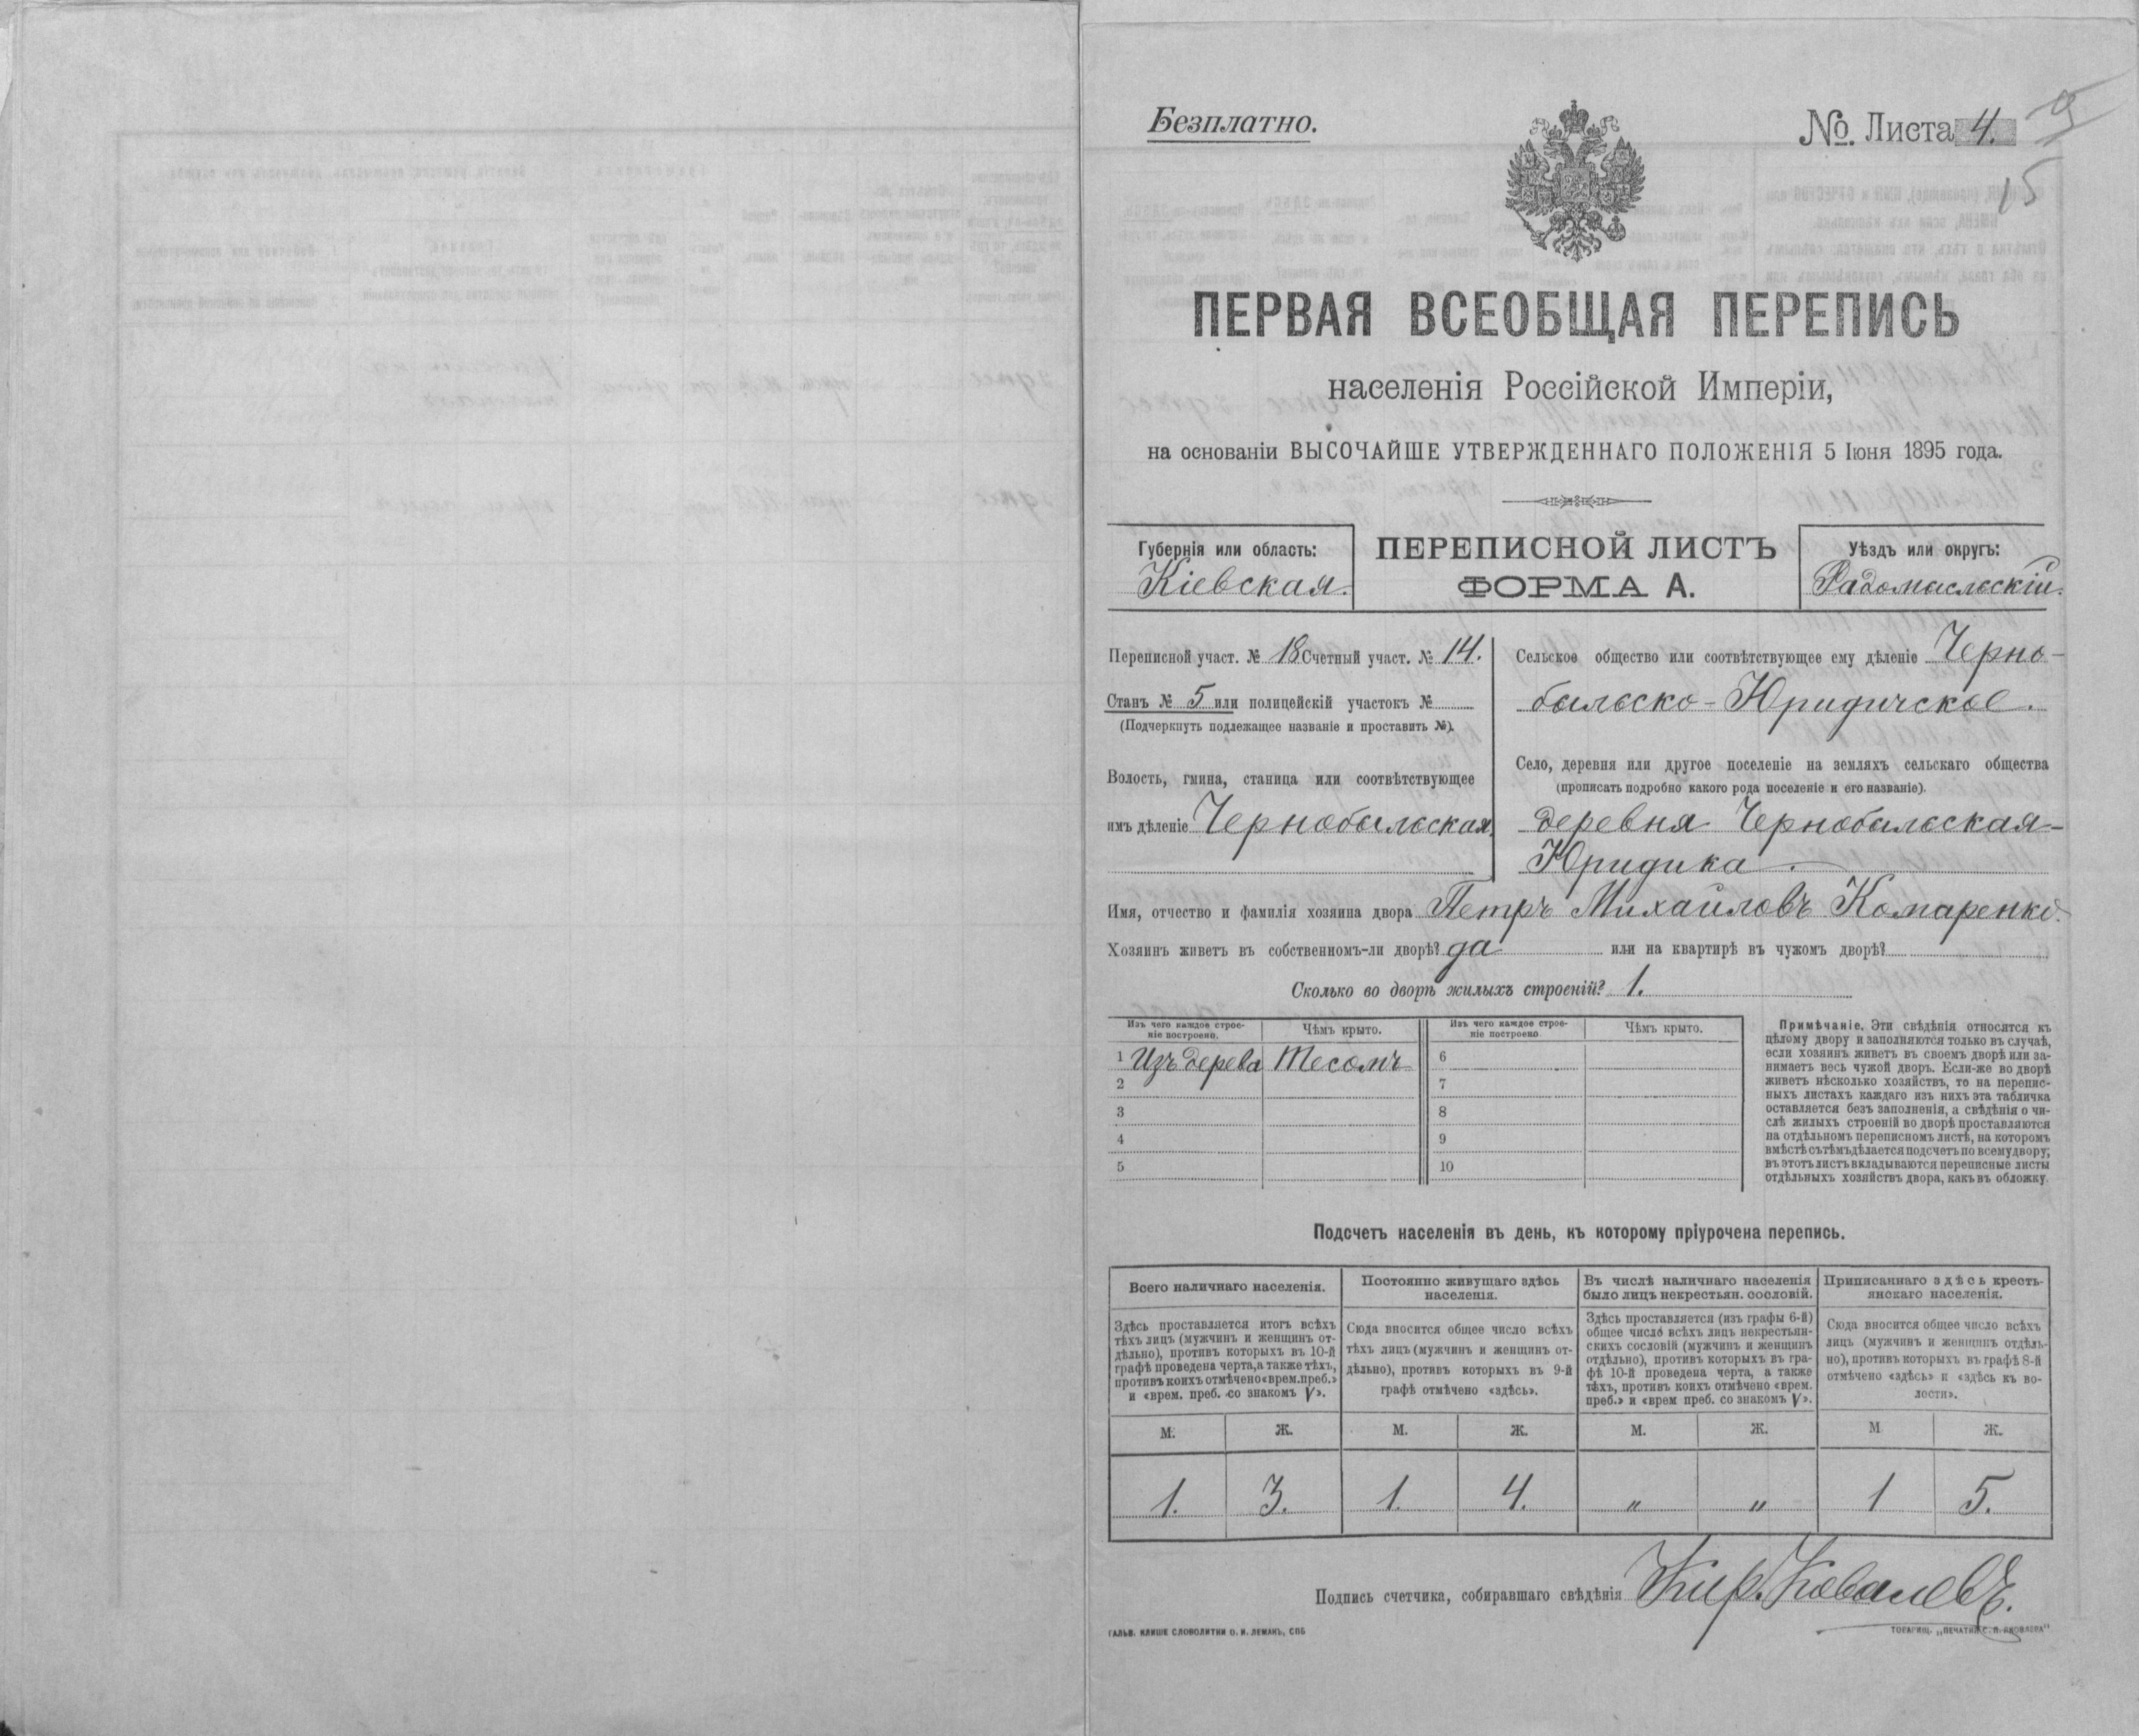 Безплатно.
№ Листа 4. 5
15
ПЕРВАЯ ВСЕОБЩАЯ ПЕРЕПИСЬ
населенія Россійской Имперіи,
на основаніи ВЫСОЧАЙШЕ УТВЕРЖДЕННАГО ПОЛОЖЕНІЯ 5 Іюня 1895 года.
Губернія или область:
Кіевская.
ПЕРЕПИСНОЙ ЛИСТЪ
ФОРМА А.
Уѣздъ или округъ:
Радомысльскій.
Переписной участ. № 18 Счетный участ. № 14.
Станъ № 5 или полицейскій участокъ №
(Подчеркнуть подлежащее названіе и проставить №).
Волость, гмина, станица или соотвѣтствующее
имъ дѣленіе Чернобыльская.
Сельское общество или соотвѣтствующее ему дѣленіе Черно-
быльско-Юридичское.
Село, деревня или другое поселеніе на земляхъ сельскаго общества
(прописать подробно какого рода поселеніе и его названіе).
деревня Чернобыльская-
Юридика.
Имя, отчество и фамилія хозяина двора Петръ Михайловъ Комаренко.
Хозяинъ живетъ въ собственномъ-ли дворѣ? да или на квартирѣ въ чужомъ дворѣ?
Сколько во дворѣ жилыхъ строеній? 1.
Изъ чего каждое строе-
ніе построено.
Чѣмъ крыто.
Изъ чего каждое строе-
ніе построено
Чѣмъ крыто.
1 Изъ дерева Тесомъ 6
2 7
3 8
4 9
5 10
Примѣчаніе. Эти свѣдѣнія относятся къ
цѣлому двору и заполняются только въ случаѣ,
если хозяинъ живетъ въ своемъ дворѣ или за-
нимаетъ весь чужой дворъ. Если-же во дворѣ
живетъ нѣсколько хозяйствъ, то на перепис-
ныхъ листахъ каждаго изъ нихъ эта табличка
оставляется безъ заполненія, а свѣдѣнія о чи-
слѣ жилыхъ строеній во дворѣ проставляются
на отдѣльномъ переписномъ листѣ, на которомъ
вмѣстѣ съ тѣмъ дѣлается подсчетъ по всему двору;
въ этотъ листъ вкладываются переписные листы
отдѣльныхъ хозяйствъ двора, какъ въ обложку.
Подсчетъ населенія въ день, къ которому пріурочена перепись.
Всего наличнаго населенія.
Здѣсь проставляется итогъ всѣхъ
тѣхъ лицъ (мужчинъ и женщинъ от-
дѣльно), противъ которыхъ въ 10-й
графѣ проведена черта, а также тѣхъ,
противъ коихъ отмѣчено «врем. преб.»
и «врем. преб. со знакомъ V».
Постоянно живущаго здѣсь
населенія.
Сюда вносится общее число всѣхъ
тѣхъ лицъ (мужчинъ и женщинъ от-
дѣльно), противъ которыхъ въ 9-й
графѣ отмѣчено «здѣсь».
Въ числѣ наличнаго населенія
было лицъ некрестьян. сословій.
Здѣсь проставляется (изъ графы 6-й)
общее число всѣхъ лицъ некрестьян-
скихъ сословій (мужчинъ и женщинъ
отдѣльно), противъ которыхъ въ гра-
фѣ 10-й проведена черта, а также
тѣхъ, противъ коихъ отмѣчено «врем.
преб.» и «врем преб. со знакомъ V».
Приписаннаго здѣсь кресть-
янскаго населенія.
Сюда вносится общее число всѣхъ
лицъ (мужчинъ и женщинъ отдѣль-
но), противъ которыхъ въ графѣ 8-й
отмѣчено «здѣсь» и «здѣсь къ во-
лости».
М. Ж. М. Ж. М. Ж. М Ж.
1. 3. 1. 4. „ „ 1 5.
Подпись счетчика, собиравшаго свѣдѣнія Кир. Ковалевъ.
ГАЛЬВ. КЛИШЕ СЛОВОЛИТНИ О. И. ЛЕМАНЪ, СПБ
ТОВАРИЩ. „ПЕЧАТНЯ С. П. ЯКОВЛЕВА"